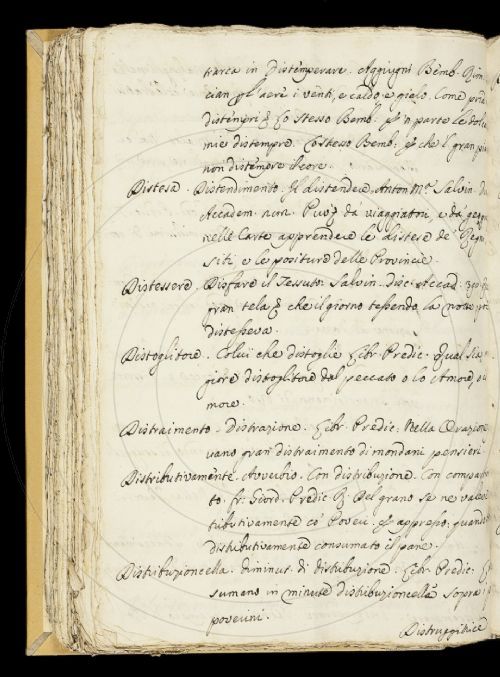 trarca in Distemperare. Aggiugni Bemb. Rim.
cian gl'aere i venti, e caldo, e gielo. Come
distempri Lo stesso Bemb: 'n parte le dolci
mie distempre. Lo stesso Bemb: che 'l gran
non distempre il core.
Distesa. Distendimento. Il distendere. Anton Mª. Salvin. Di
Accadem. num. Puoss da viaggiatori, e da
nelle Carte apprendere le distese de' Regni
siti, e le positure delle Provincie.
Distessere. Disfare il Tessuto. Salvin. Disc. Accad.
gran tela che il giorno tessendo, la notte
distesseva.
Distoglitore. Colui che distoglie Libr. Predic. Qual
giore distoglitore dal peccato o lo Amore, o
more.
Distraimento. Distrazione. Libr. Predic. Nella Orazione
vano gran distraimento di mondani pensieri.
Distributivamente. Avverbio. Con distribuzione. Con
to. fr: Giord. Predic R. Del grano se ne
tributivamente co' Poveri. appresso, quando
distributivamente consumato il pane.
Distribuzioncella. diminut. di distribuzione. Libr. Predic.
sumano in minute distribuzioncelle sopra i
poverini.
Distruggitrice